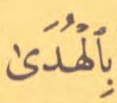 بِٱلْهُدَىٰ